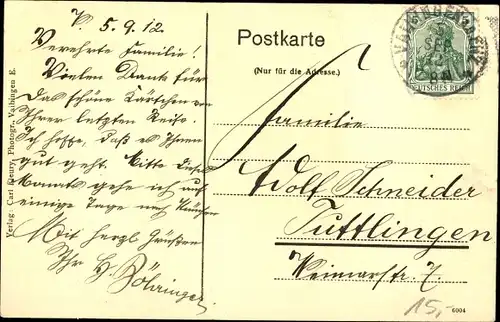 V. 5. 9. 12.
Verehrte Familie!
Vielen Dank für
das schöne Kärtchen von
Ihrer letzten Reise.
Ich hoffe, daß es Ihnen
gut geht. Mitte dieses
Monats gehe ich auf
einige Tage nach München
Mit herzl Grüßen
Ihr H. Böhringer
Verlag: Carl Fleury, Photogr., Vaihingen E.
Postkarte
(Nur für die Adresse.)
VAIHINGEN
SEP
12
8
DEUTSCHES REICH
Familie
Adolf Schneider
Tuttlingen
Weimarstr. 7.
15,-
6004